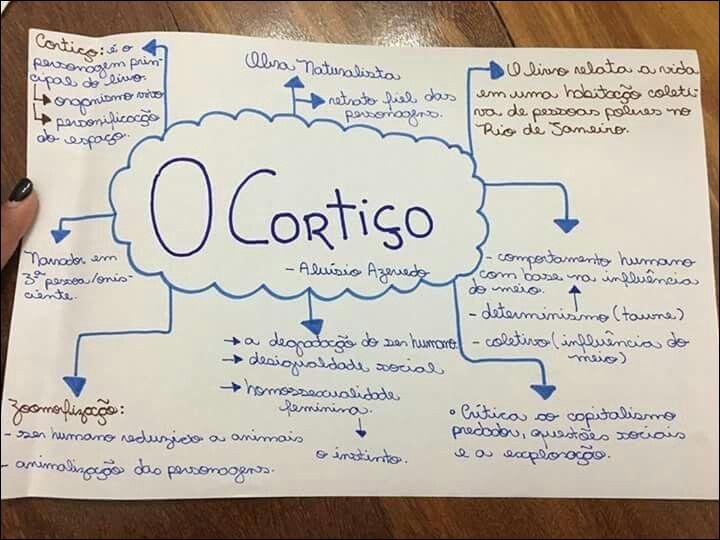 Cortiço: é o
personagem prin-
cipal do livro.
↳ organismo vivo
↳ personificação
do espaço.
Obra Naturalista
→ retrato fiel das
personagens.
O livro relata a vida
em uma habitação coleti
va de pessoas pobres no
Rio de Janeiro.
O Cortiço
- Aluísio Azevedo
Narrador em
3ª pessoa/onis-
ciente.
- comportamento humano
com base na influência
do meio.
- determinismo (taine)
- coletivo (influência do
meio)
→ a degradação do ser humano
→ desigualdade social
→ homossexualidade
feminina.
o instinto.
Zoomorfização:
- ser humano reduzido a animais
- animalização das personagens.
• Crítica ao capitalismo
predador, questões sociais
e a exploração.